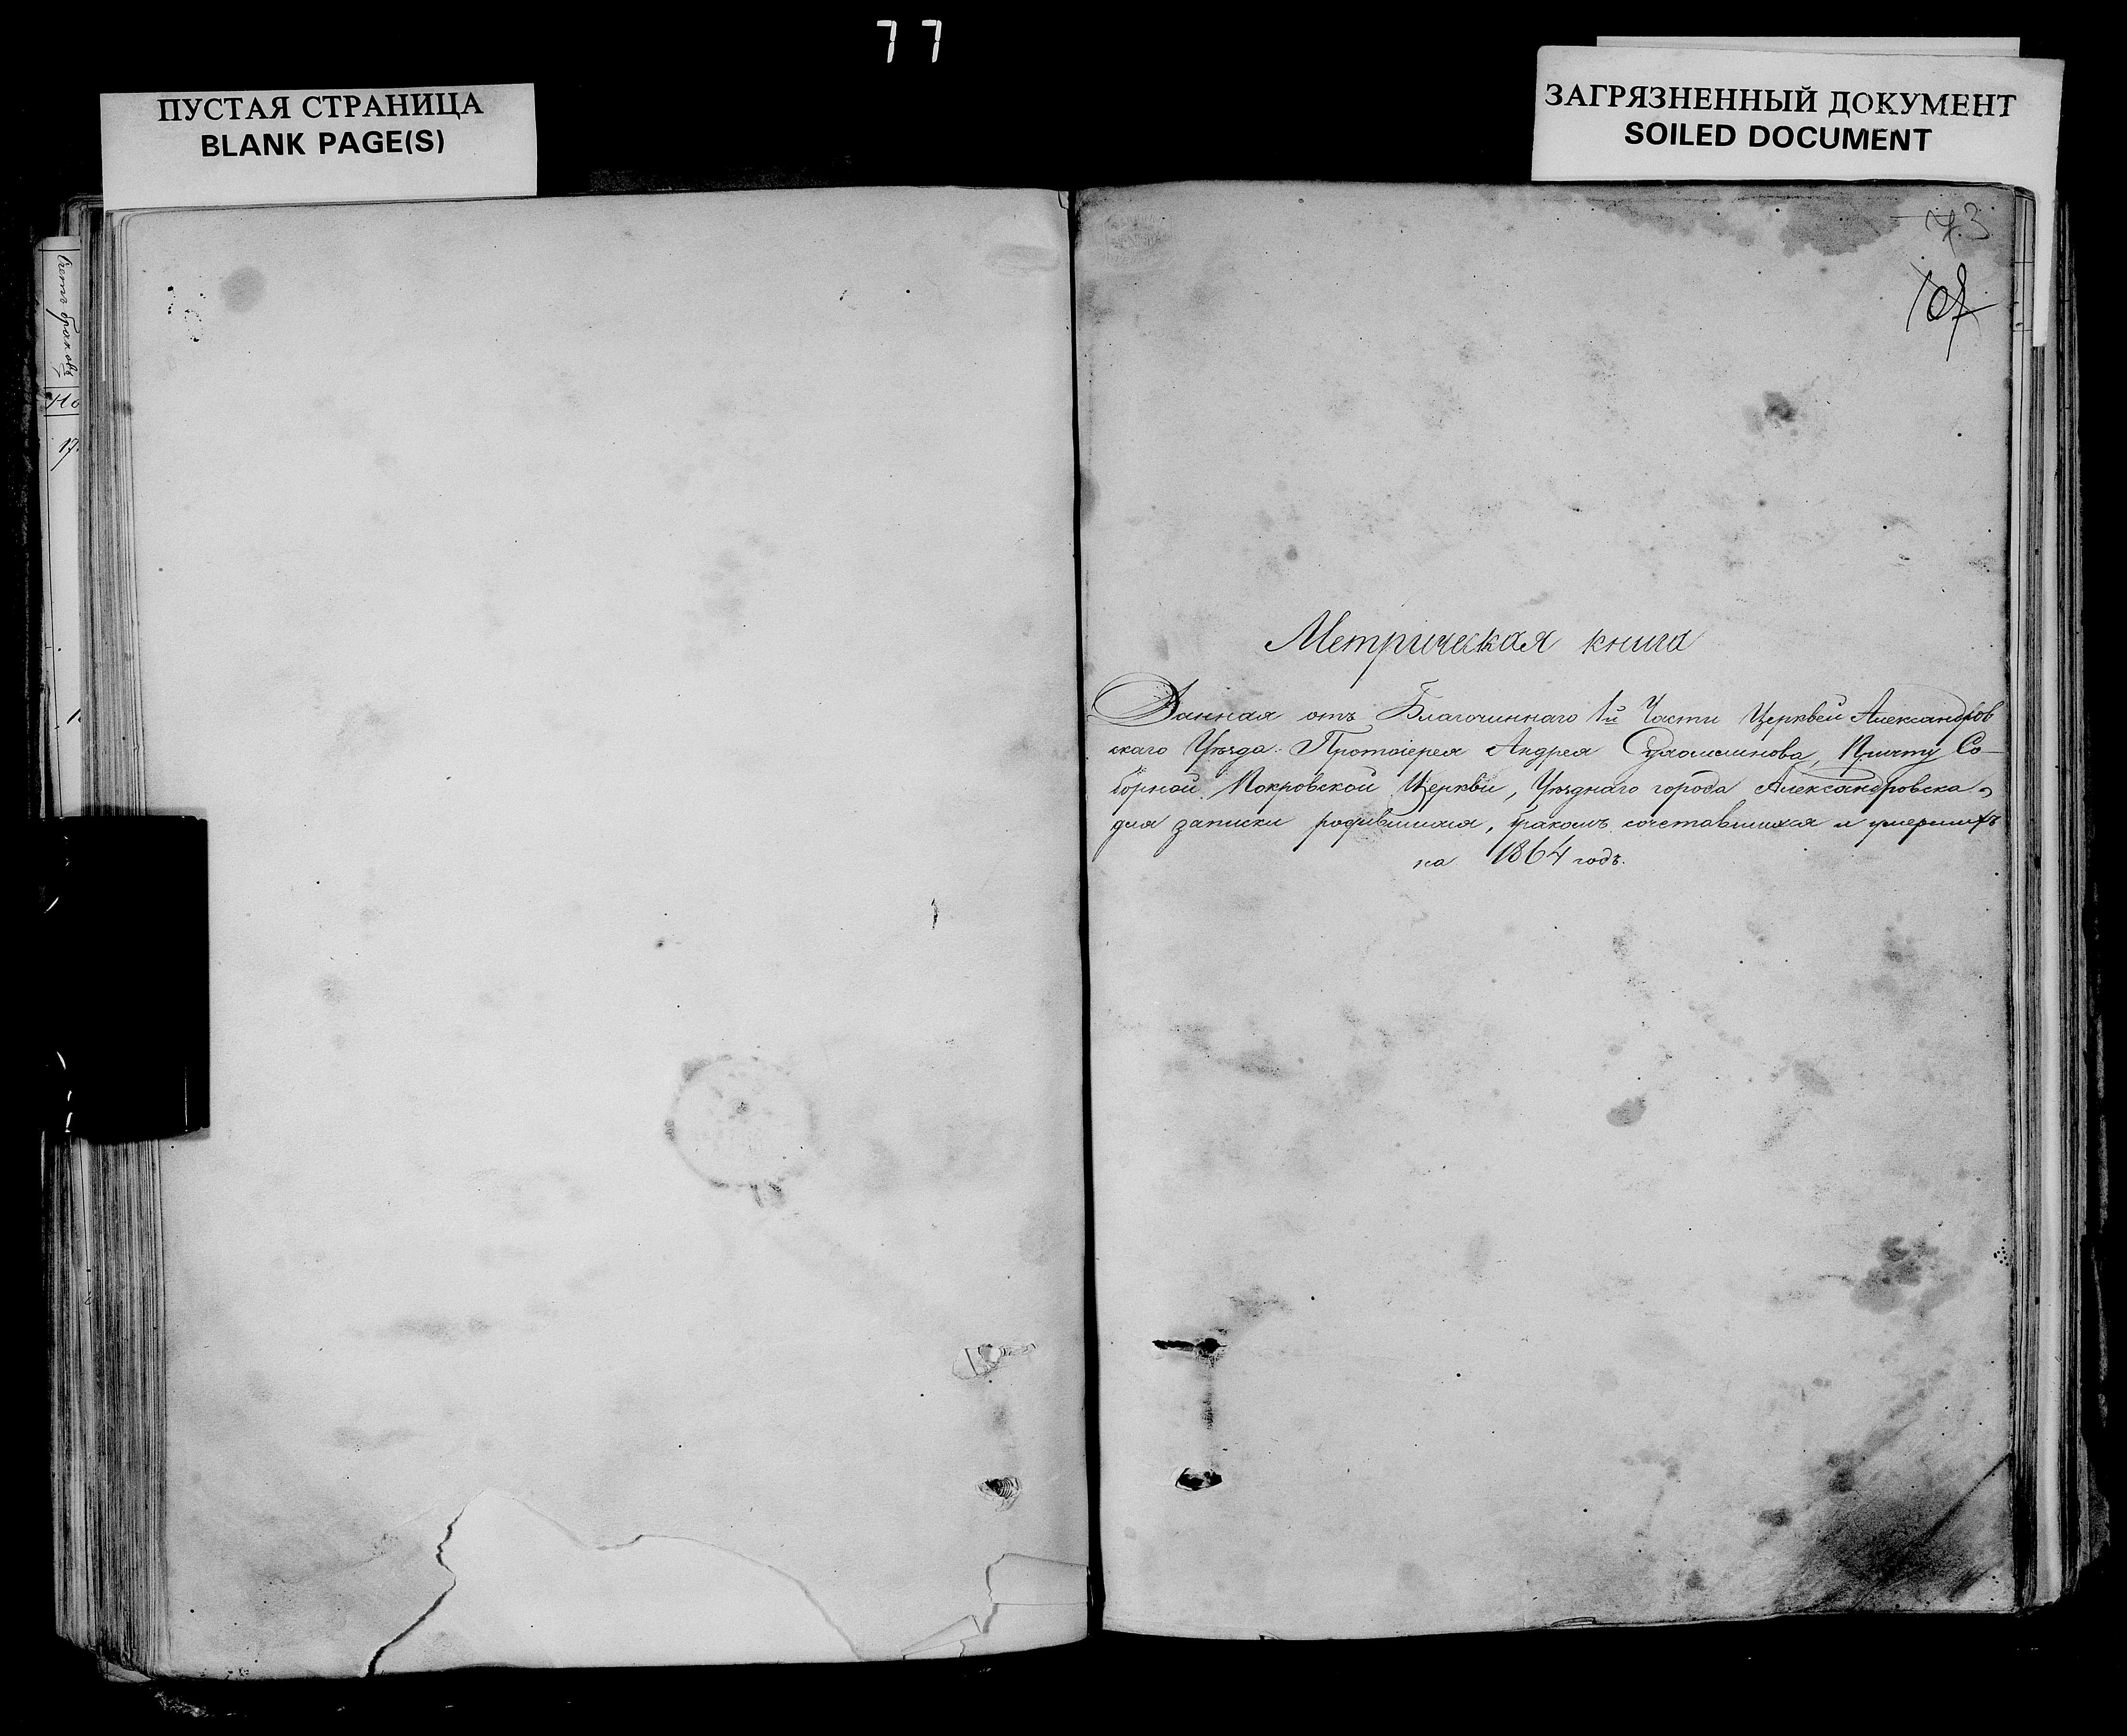 77
ПУСТАЯ СТРАНИЦА
BLANK PAGE(S)
ЗАГРЯЗНЕННЫЙ ДОКУМЕНТ
SOILED DOCUMENT
Счетъ браковъ
17
73
107
Метрическая книга
Данная отъ Благочиннаго 1й Части Церквей Александров
скаго Уѣзда Протоіерея Андрея Причту Со-
борной Покровской Церкви, Уѣзднаго города Александровска,
для записки родившихся, бракомъ сочетавшихся и умершихъ
на 1864 годъ.